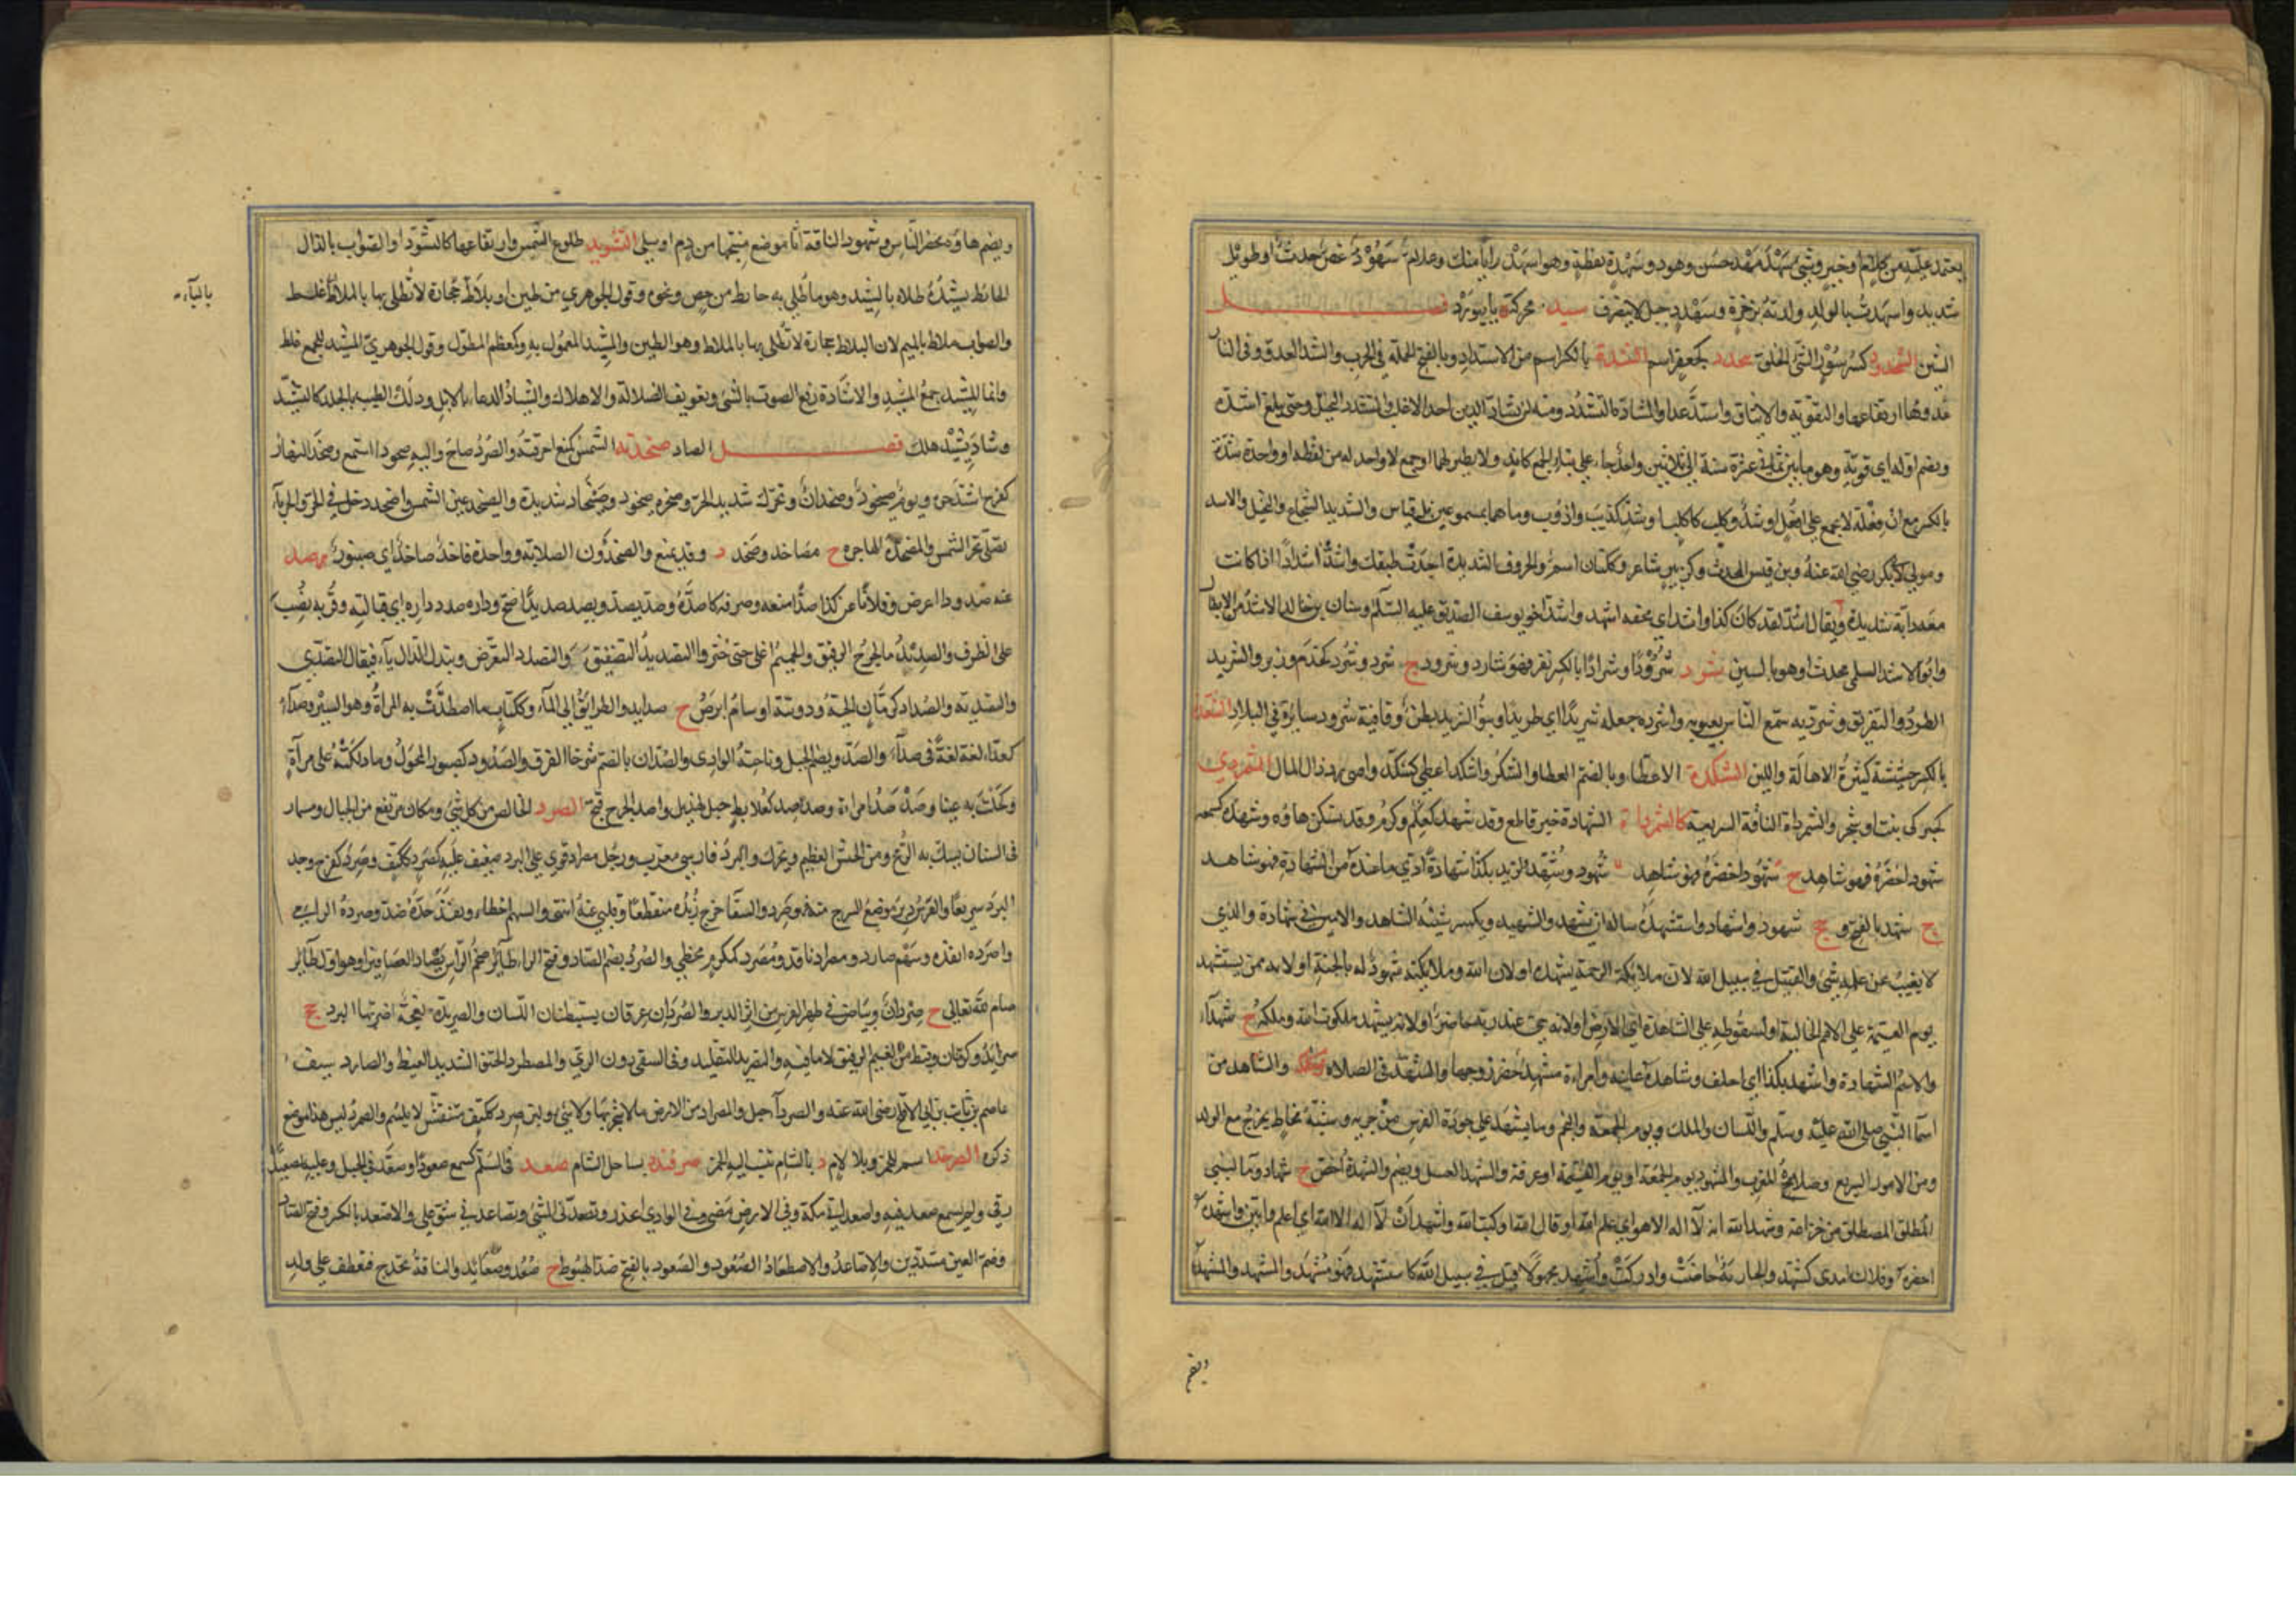 يعتمد عليه من كلام وخير وشئ سهد مهد حسن وهو ذو سهدة يقظة وهو اسهد رايا منك وغلام سهود غض حدث او طويل
شديد واسهدت بالولد ولدته بزخرة وسهدد جبل لا ينصرف سيد محركة بابيورد فصل
الشين الشحدود كسرسور السئ الخلق شحدد كجعفر اسم الشدة بالكسر اسم من الاشتداد وبالفتح الحملة في الحرب والشد العدو وفي النار
ارتفاعها والتقوية والايثاق واشتد عدا والمشادة التشدد ومنه لن يشاد الدين احد الا غلبه المتشدد البخيل وحتى يبلغ اشده
ويضم اوله اي قوته وهو ما بين ثماني عشرة سنة الى ثلاثين واحد جاء على بناء الجمع كآنك ولا نظير لهما او جمع لا واحد له من لفظه او واحده شدة
بالكسر مع ان فعلة لا تجمع على افعل او شد وكلب كاكلب او شد كذيب واذؤب وما هما بمسموعين بل قياس والشديد الشجاع والبخيل والاسد
ومولى لابي بكر رضي الله عنه وبن قيس المحدث وكزبير شاعر وككتان اسم والحروف الشديدة اجدت طبقك واشد اشدادا اذا كانت
معه دابة شديدة ويقال اشد لقد كان كذا واشد اي مخففة اشهد واشد اخو يوسف الصديق عليه السلام وسنان بن خالد الاشد من الابطال
وابو الاشد السلمي محدث او هو بالسين شرد شرودا وشرادا بالكسر نفر فهو شارد وشرود ج شرد وشرد كخدم وزبر والتشريد
الطرد والتفريق وشرد به سمع الناس بعيوبه واشرده جعله شريدا اي طريدا وبنو الشريد بطن وقافية شرود سايرة في البلاد
بالكسر حشيشة كثيرة الاهالة واللبن الشكدة الاعطاء وبالضم العطا والشكر واشكد اعطى كشكد واصى رذال المال الشمردى
كحبركى نبت او شجر والشمرداة الناقة السريعة كالشمرذاة الشهادة خبر قاطع وقد شهد كعلم وكرم وقد تسكن هاؤه وشهده كسمعه
شهودا حضره فهو شاهد ج شهود وشهد لزيد بكذا شهادة ادى ما عنده من الشهادة فهو شاهد
ج شهد بالفتح و جج شهود واشهاد واستشهده ساله ان يشهد والشهيد ويكسر شينه الشاهد والامين في شهادة والذي
لا يغيب عن علمه شئ والقتيل في سبيل الله لان ملايكة الرحمة تشهده او لان الله وملايكته شهود له بالجنة او لانه ممن يستشهد
يوم القيمة على الامم الخالية او لسقوطه على الشاهدة اي الارض او لانه حي عند ربه حاضر او لانه يشهد ملكوت الله وملكه ج شهداء
والاسم الشهادة واشهد بكذا اي احلف وشاهده عاينه وامراة مشهد حضر زوجها والتشهد في الصلاة والشاهد من
اسماء النبي صلى الله عليه وسلم واللسان والملك ويوم الجمعة والنجم وما يشهد على جودة الفرس من جريه وشبه مخاط يخرج مع الولد
ومن الامور السريع وصلاة المغرب والمشهود يوم الجمعة او يوم القيمة او عرفة والشهد العسل ويضم والشهدة اخص ج شهاد وما لبني
المطلق المصطلق من خزاعة وشهد الله انه لا اله الا هو اي علم الله او قال الله او كتب الله واشهد ان لا اله الا الله اي اعلم وابين واشهده
احضره وفلان امدى كشهد والجارية حاضت وادركت واشهد مجهولا قتل في سبيل الله كاستشهد فهو مشهد والمشهد والمشهدة
ويضم
ويضم هاؤه محضر الناس وشهود الناقة اثار موضع منتجها من دم او سلى التشويد طلوع الشمس وارتفاعها كالتشود او الصواب بالذال
الحائط يشيده طلاه بالشيد وهو ما طلي به حائط من جص ونحوه وقول الجوهري من طين او بلاط حجارة لا تطلى بها بالملاط غلط
بالباء
والصواب ملاط بالميم لان البلاط حجارة لا تطلى بها بالملاط وهو الطين والمشيد المعمول به وكمعظم المطول وقول الجوهري المشيد للجمع غلط
وانما المشيدة جمع المشيد والاشادة رفع الصوت بالشئ وتعريف الضلالة والاهلاك والشياد الدعاء بالابل ودلك الطيب بالجلد كالتشيد
وشاد يشيد هلك فصل الصاد صخدته الشمس كمنع احرقته والصرد صاح واليه صخودا استمع وصخد النهار
كفرح اشتد حره ويوم صيخود وصخدان ويحرك شديد الحر وصخرة صيخود وصيخاد شديدة والصيخد عين الشمس واصخد دخل في الحر والحرباء
تصلى بحر الشمس والمصخدة الهاجرة ج مصاخد وصخد د وقد يمنع والصخدون الصلابة وواحد قاخد صاخد اي صنبور صد
عنه صدودا اعرض وفلانا عن كذا صدا منعه وصرفه كاصده وصد يصد ويصد صديدا ضج وداره صدد داره اي قبالته وقربه نصب
على الظرف والصديد ماء الجرح الرقيق والحميم اغلي حتى خثر والتصديد التصفيق والتصدد التعرض وتبدل الدال ياء فيقال التصدي
والتصدية والصداد كرمان الحية ودويبة او سام ابرص ج صدايد والطريق الى الماء وككتاب ما اصطدت به المراة وهو الستر وصداء
كعداء لغة في صداء والصد ويضم الجبل وناحية الوادي والصدان بالضم شرخا الفوق والصدود كصبور المجول وما دلكته على مرآة
وكحلت به عينا وصد صد امراة وصداصد كعلابط جبل لهذيل واصد الجرح قيح الصرد الخالص من كل شئ ومكان مرتفع من الجبال ومسمار
في السنان يشك به الرمح ومن الجيش العظيم ويحرك والبرد فارسي معرب ورجل مصراد قوي على البرد ضعيف عليه كصرد ككتف وصرد كفرح وجد
البرد سريعا والفرس دبر موضع السرج منه فهو صرد والسقا خرج زبده متقطعا وقلبي عنه انتهى والسهم اخطا ونفذ حده ضد وصرده الرامي
واصرده انفذه وسهم صارد ومصراد نافذ ومصرد كمكرم مخطئ والصرد بضم الصاد وفتح الراء طائر ضخم الراس يصطاد العصافير او هو اول طائر
صام لله تعالى ج صردان وبياض في ظهر الفرس من اثر الدبر والصردان عرقان يستبطنان اللسان والصريدة نعجة اضر بها البرد ج
صرائد وكرمان وقبيط من الغيم الرقيق لا ماء فيه والتصريد التقليل وفي السقي دون الري والمصطرد الحنق الشديد الغيظ والصارد سيف
عاصم بن ثابت بن ابي الاقلح رضي الله عنه والصرداء جبل والمصراد من الارض ما لا شجر بها ولا شئ ولبن صرد ككتف منتفش لا يلتئم والصمرد ليس هذا موضع
ذكره الصرخد اسم للخمر وبلا لام د بالشام تنسب اليه الخمر صرفندة بساحل الشام صعد في السلم كسمع صعودا وصعد في الجبل وعليه تصعيدا
رقي ولم يسمع صعد فيه واصعد اتى مكة وفي الارض مضى وفي الوادي انحدر وتصعدني الشئ وتصاعد في شق علي والاصعد بالكسر وفتح الصاد
وضم العين مشددتين والاصاعد والاصطعاد الصعود والصعود بالفتح ضد الهبوط ج صعد وصعائد والناقة تخدج فتعطف على ولد